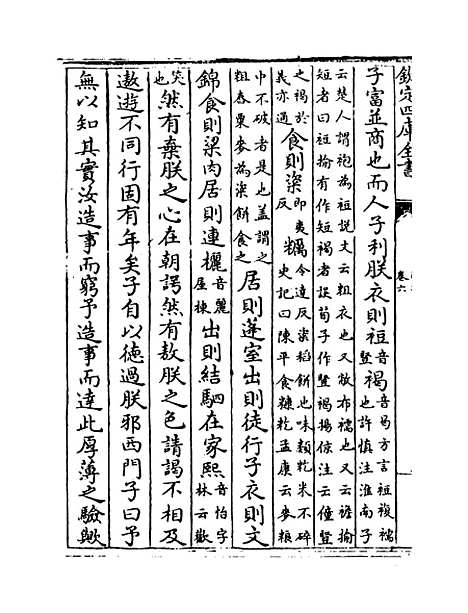 欽定四庫全書 卷六
子富並商也而人子利朕衣則裋音豎褐音曷方言裋複襦也許慎注淮南子
云楚人謂袍為裋說文云粗衣也又敝布襦也又云襜褕短者曰裋褕有作短褐者誤荀子作豎褐楊倞注云僮豎
之褐於義亦通食則粢即夷反糲今達反粢稻餅也味類籺米不碎史記曰陳平食糠籺孟康云麥糠
中不破者是也蓋謂之粗舂粟麥為粢餅食之居則蓬室出則徒行子衣則文
錦食則粱肉居則連欐音麗屋棟出則結駟在家熙音怡字林云歡
笑也然有棄朕之心在朝諤然有敖朕之色請謁不相及
遨遊不同行固有年矣子自以德過朕邪西門子曰予
無以知其實汝造事而窮予造事而達此厚薄之驗歟